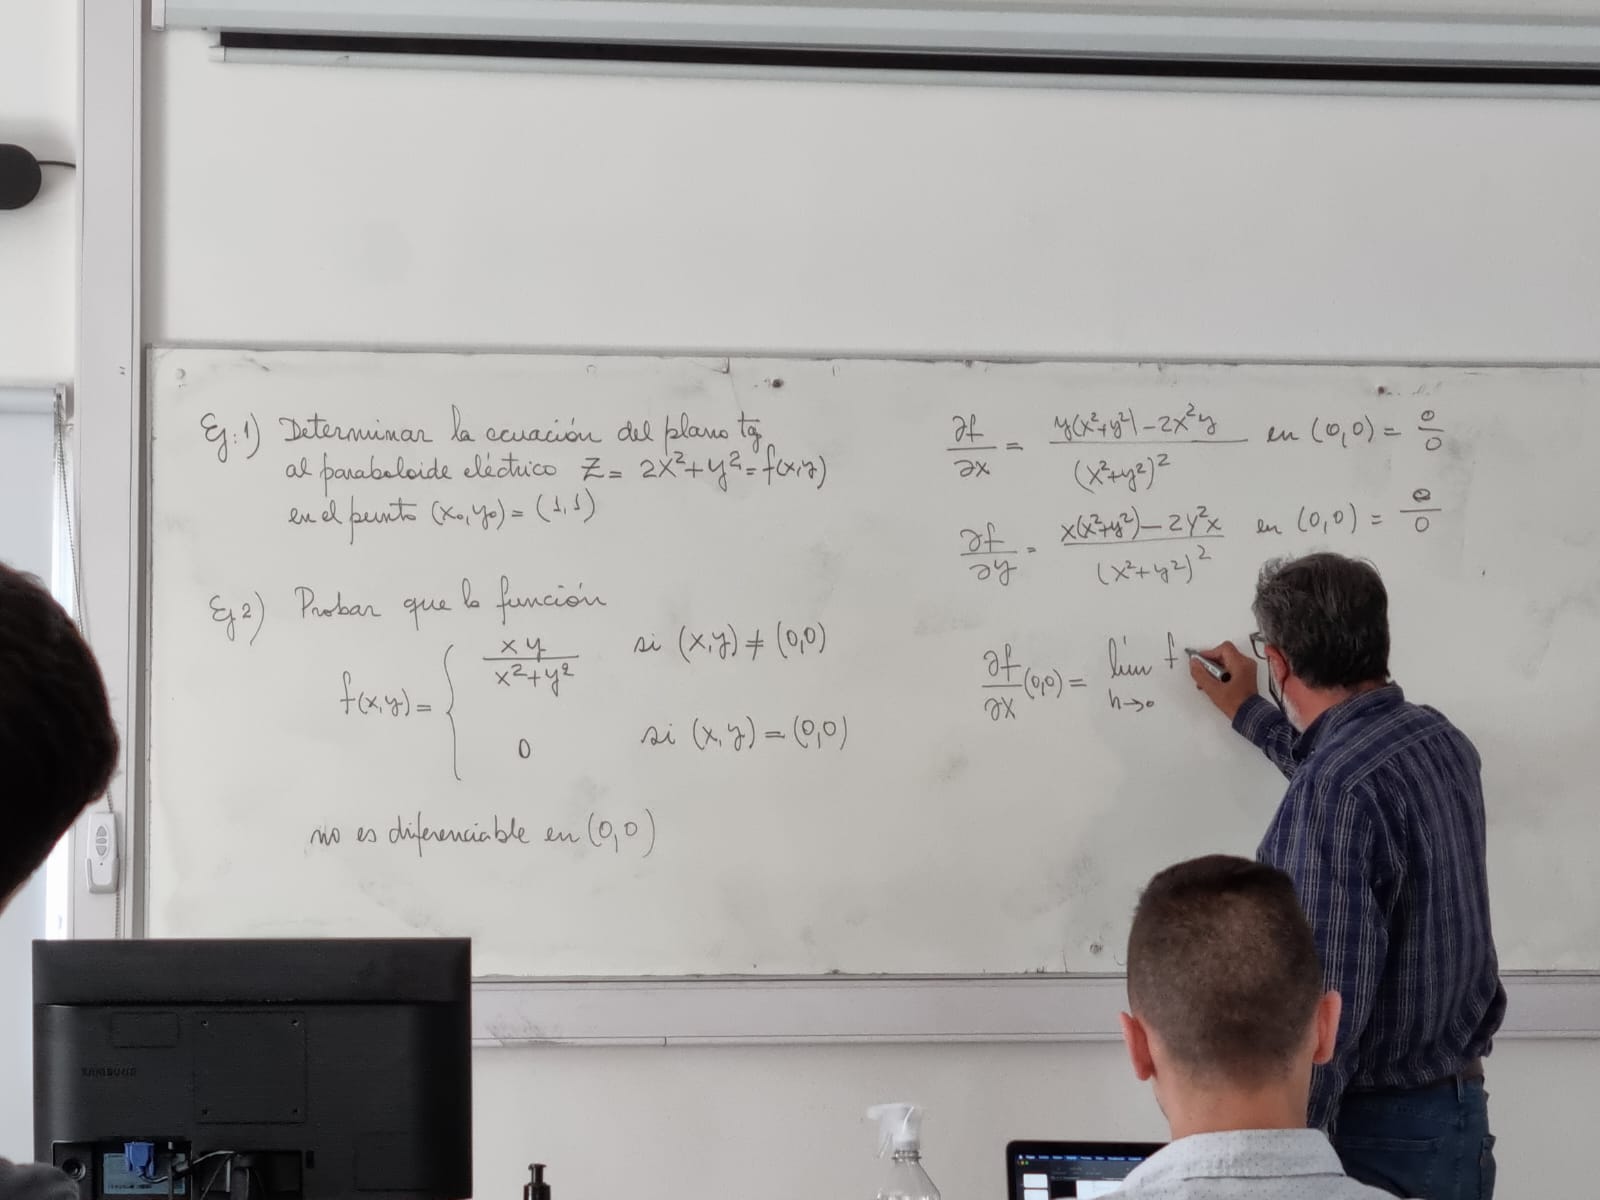 Ej:1) Determinar la ecuación del plano tg
al paraboloide eléctrico Z = 2x²+y² = f(x,y)
en el punto (x₀,y₀) = (1,1)
Ej2) Probar que la función
f(x,y) = { xy / x²+y² si (x,y) ≠ (0,0)
0 si (x,y) = (0,0)
no es diferenciable en (0,0)
∂f/∂x = y(x²+y²) − 2x²y / (x²+y²)² en (0,0) = 0/0
∂f/∂y = x(x²+y²) − 2y²x / (x²+y²)² en (0,0) = 0/0
∂f/∂x (0,0) = lím h→0 f
SAMSUNG